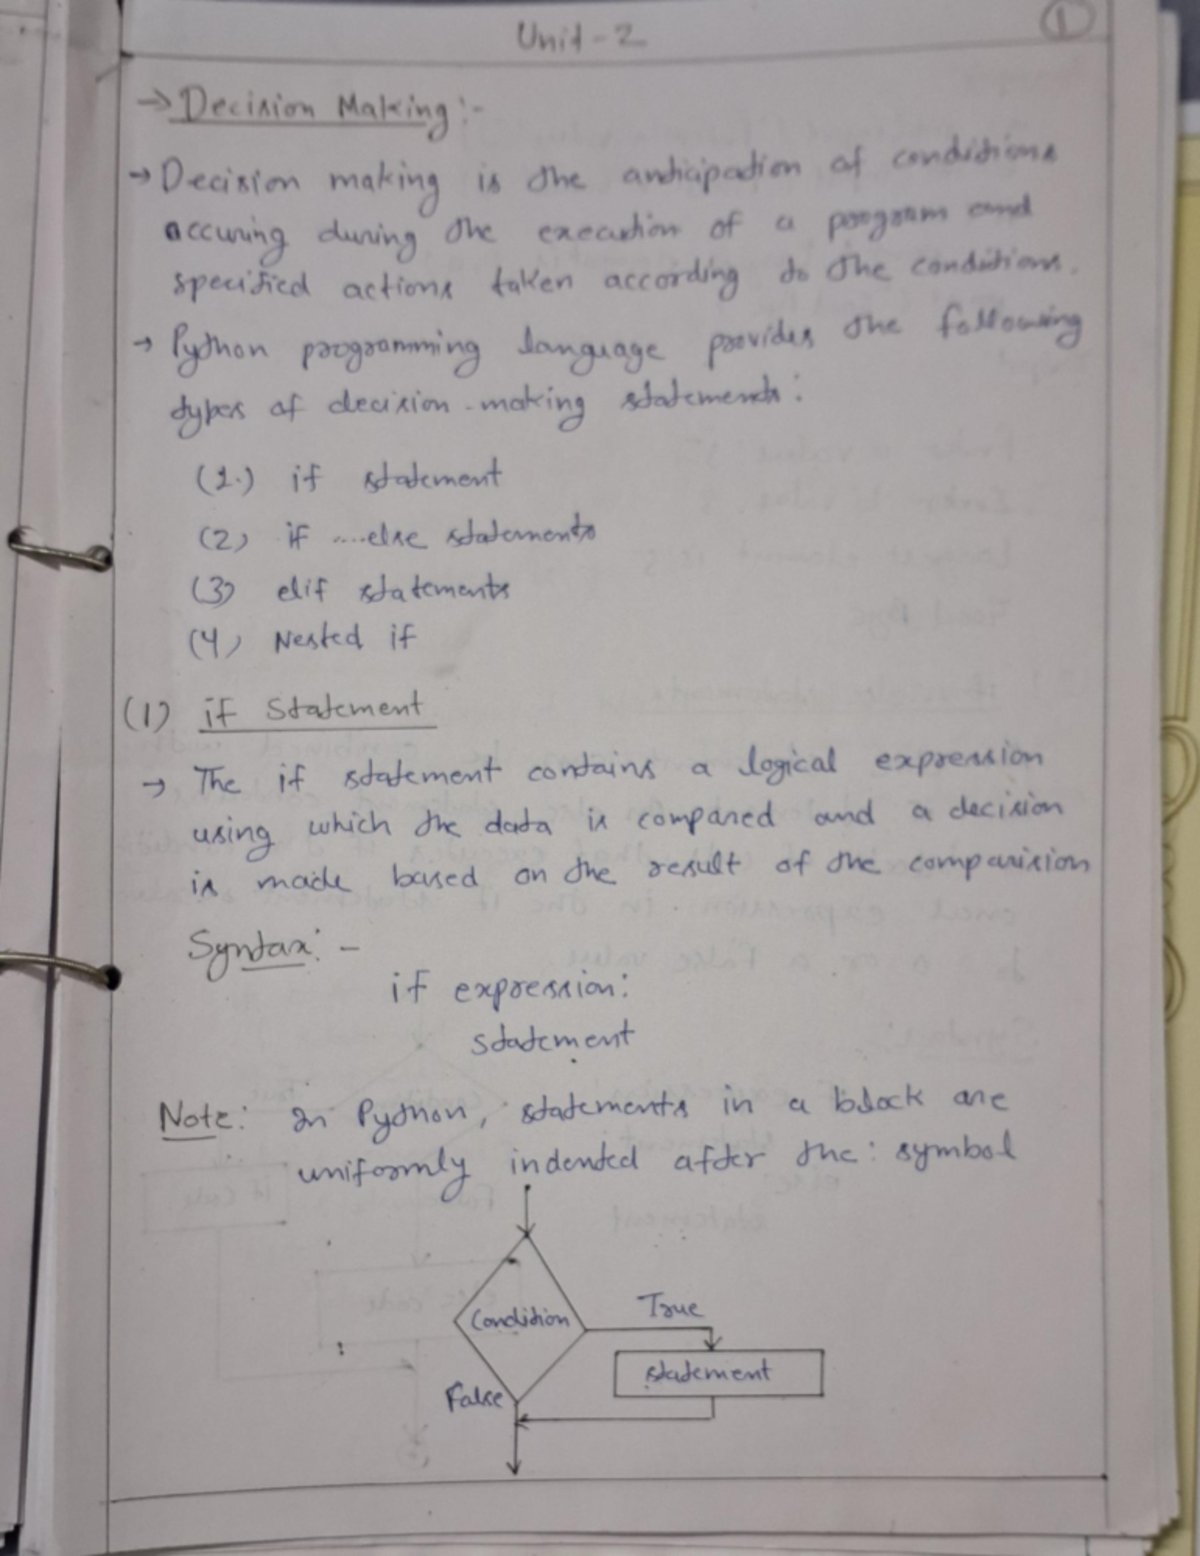 Unit-2
1
→ Decision Making:-
→ Decision making is the anticipation of conditions
occuring during the execution of a program and
specified actions taken according to the conditions.
→ Python programming language provides the following
types of decision-making statements:
(1.) if statement
(2) if ....else statements
(3) elif statements
(4) Nested if
(1) if Statement
→ The if statement contains a logical expression
using which the data is compared and a decision
is made based on the result of the comparision
Syntax: -
if expression:
statement
Note: In Python, statements in a block are
uniformly indented after the : symbol
Condition
True
statement
False